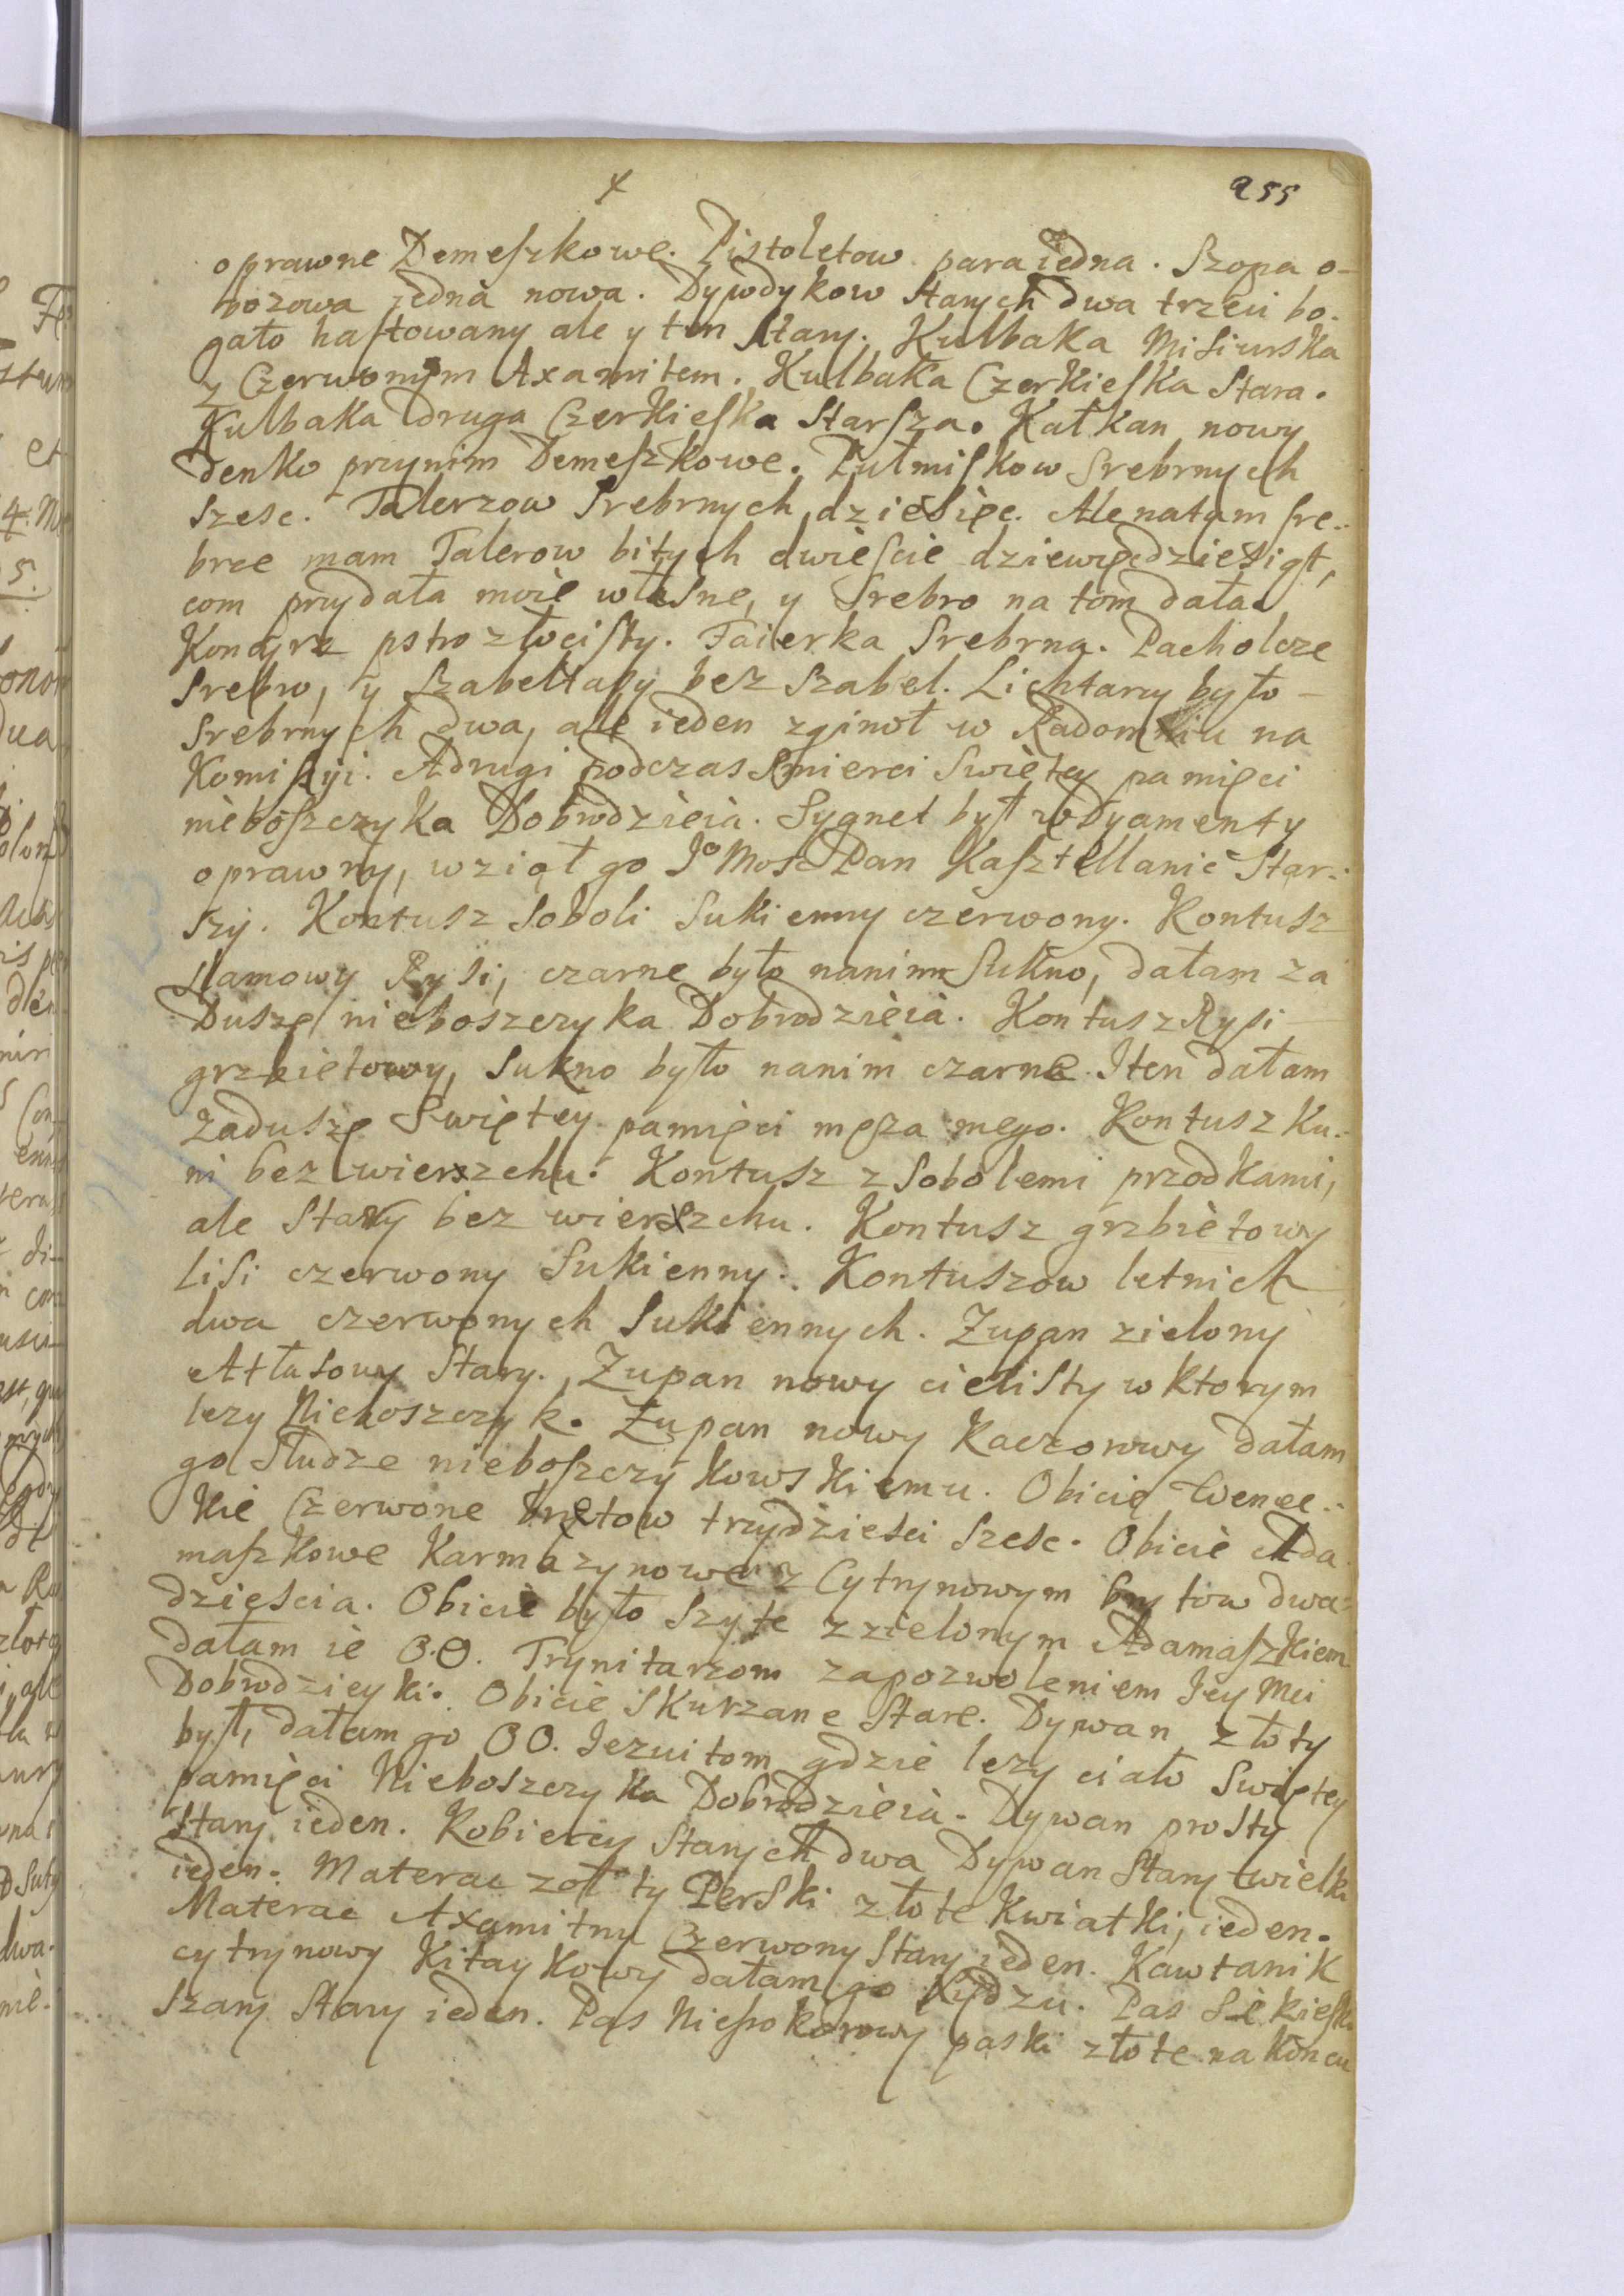 255
oprawne Demeszkowe. Pistoletow para iedna. Szopa o-
bozowa iedna nowa. Dywdykow Starych dwa trzeci bo-
gato haftowany ale y ten Stary. Kulbaka Misiurska
z Czerwonym Axamitem. Kulbaka Czerkieska Stara.
Kulbaka druga Czerkieska Starsza. Kałkan nowy
denko przynim Demeszkowe. Pułmiskow Srebrnych
szesc. Talerzow Srebrnych dziesięc. Ale natym sre-
brze mam Talerow bitych dwiescie dziewięcdziesiąt,
com przydała moie własne, y Srebro na tom dała
Konayrz pstro złocisty. Faierka Srebrna. Pacholcze
Srebro, y Szabeltasy bez szabel. Lichtarzy było
Srebrnych dwa, ale ieden zginoł w Radomiu na
Komissyi. A drugi podczas Smierci Swiętey pamięci
nieboszczyka Dobrodzieia. Sygnet był w Dyamenty
oprawny, wziął go Jo Mosc Pan Kasztellanic Star-
szy. Kontusz Soboli Sukienny czerwony. Kontusz
slamowy Rysi, czarne było nanim Sukno, dałam za
Duszę nieboszczyka Dobrodzieia. Kontusz Rysi
grzbietowy, Sukno było nanim czarne. Iten dałam
zaduszę Swiętey pamięci męza mego. Kontusz Ku-
ni bez wierzchu. Kontusz z Sobolemi przodkami,
ale Stary bez wierzchu. Kontusz grzbietowy
Lisi czerwony Sukienny. Kontuszow letnich
dwa czerwonych Sukiennych. Zupan zielony
Atłasowy Stary. Zupan nowy cielisty w ktorym
lezy Nieboszczyk. Zupan nowy Kaczorowy dałam
go Słudze nieboszczykowskiemu. Obicie Wenec-
kie Czerwone brytow trzydziesci Szesc. Obicie Ada-
maszkowe Karmazynowe z Cytrynowym brytow dwa-
dziescia. Obicie było Szyte z zielonym Adamaszkiem
dałam ie O.O. Trynitarzom zapozwoleniem Iey Mci
Dobrodzieyki. Obicie Skurzane Stare. Dywan złoty
był, dałam go OO. Iezuitom gdzie lezy ciało Swiętey
pamięci Nieboszczyka Dobrodzieia. Dywan prosty
Stary ieden. Kobiercy Starych dwa Dywan Stary wielki
ieden. Materac zołty Perski złote Kwiatki, ieden.
Materac Axamitny Czerwony Stary ieden. Kawtanik
cytrynowy Kitaykowy dałam go Xiędzu. Pas Siekieski
Szary Stary ieden. Pas Niessokorowy paski złote na koncu